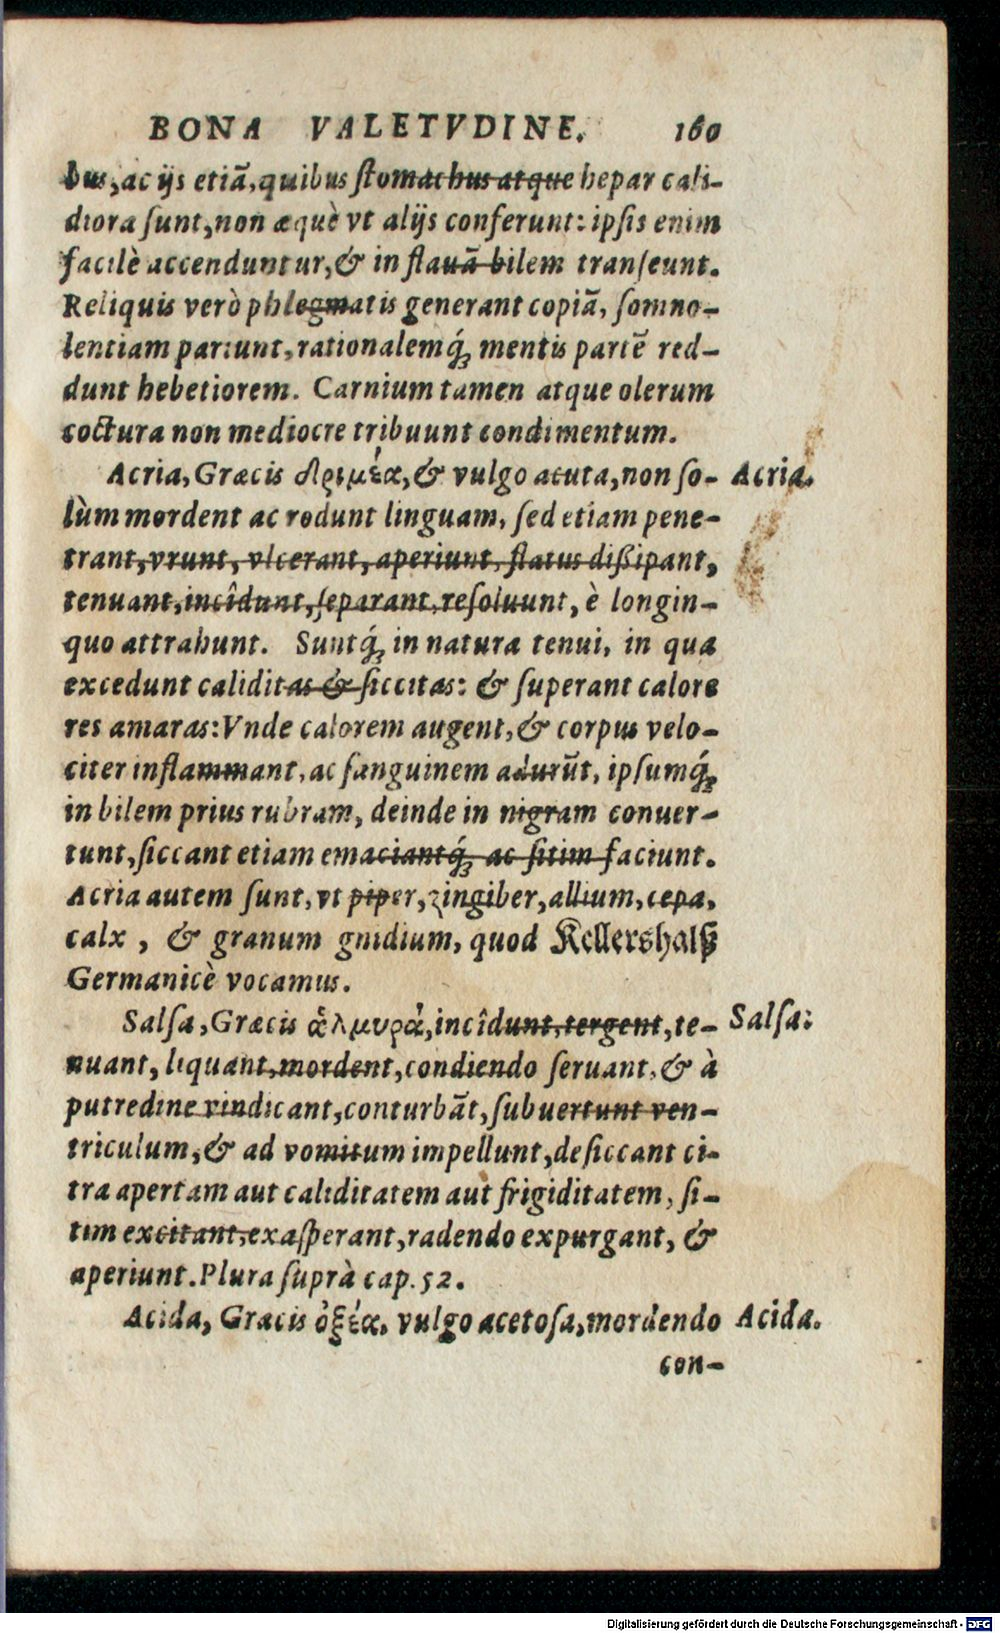 BONA VALETVDINE. 160
bus, ac ijs etiã, quibus ſtomachus atque hepar cali-
diora ſunt, non æquè vt alijs conferunt: ipſis enim
facilè accenduntur, & in flauã bilem tranſeunt.
Reliquis verò phlegmatis generant copiã, ſomno-
lentiam pariunt, rationalemq́; mentis partẽ red-
dunt hebetiorem. Carnium tamen atque olerum
coctura non mediocre tribuunt condimentum.
Acria, Græcis δριμέα, & vulgo acuta, non ſo-
Acria.
lùm mordent ac rodunt linguam, ſed etiam pene-
trant, vrunt, vlcerant, aperiunt, flatus diſsipant,
tenuant, incîdunt, ſeparant, reſoluunt, è longin-
quo attrahunt. Suntq́; in natura tenui, in qua
excedunt caliditas & ſiccitas: & ſuperant calore
res amaras: Vnde calorem augent, & corpus velo-
citer inflammant, ac ſanguinem adurũt, ipſumq́;
in bilem prius rubram, deinde in nigram conuer-
tunt, ſiccant etiam emaciantq́; ac ſitim faciunt.
Acria autem ſunt, vt piper, zingiber, allium, cepa,
calx, & granum gnidium, quod Kellershalß
Germanicè vocamus.
Salſa, Græcis ἁλμυρὰ, incîdunt, tergent, te-
Salſa:
nuant, liquant, mordent, condiendo ſeruant, & à
putredine vindicant, conturbãt, ſubuertunt ven-
triculum, & ad vomitum impellunt, deſiccant ci-
tra apertam aut caliditatem aut frigiditatem, ſi-
tim excitant, exaſperant, radendo expurgant, &
aperiunt. Plura ſuprà cap. 52.
Acida, Græcis ὀξέα, vulgo acetoſa, mordendo
Acida.
con-
Digitalisierung gefördert durch die Deutsche Forschungsgemeinschaft - DFG